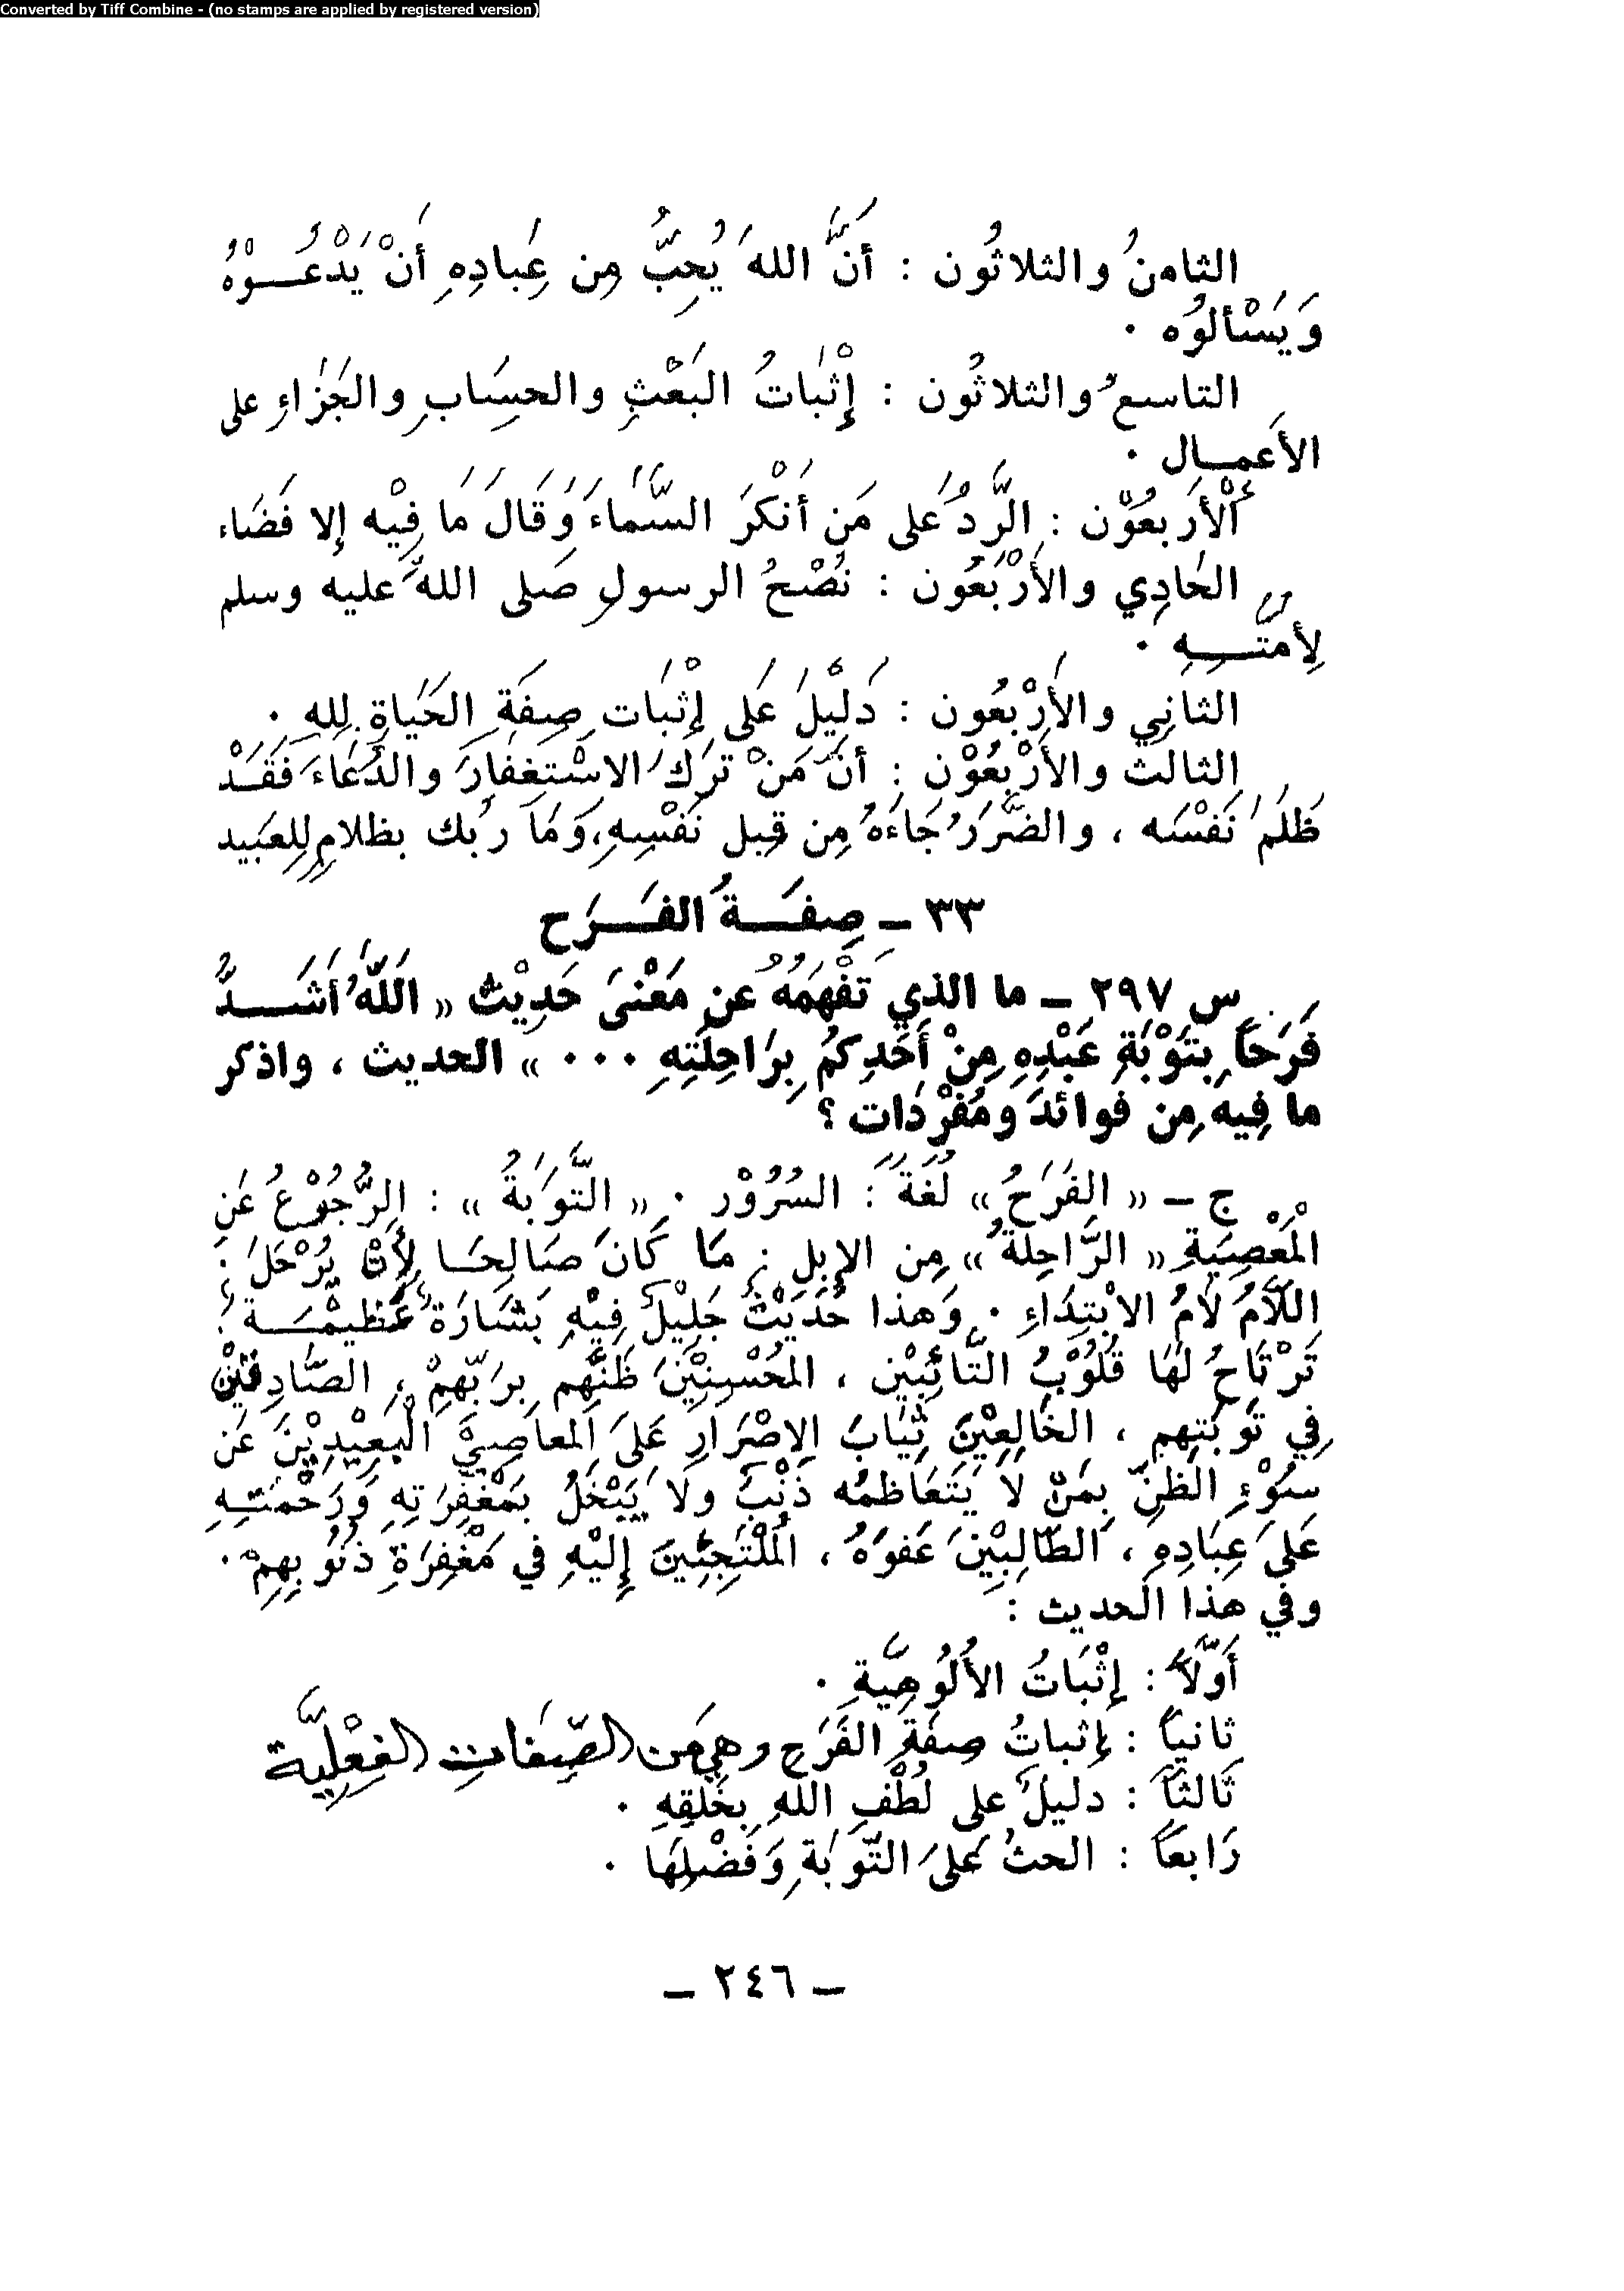 Converted by Tiff Combine - (no stamps are applied by registered version)
الثامنُ والثلاثُون : أنَّ اللهَ يُحِبُّ مِن عِبادِهِ أنْ يَدْعُـــوْهُ
وَيَسْألوُه .
التاسعُ والثلاثُون : إثْبَاتُ البَعْثِ والحِسَابِ والجَزَاءِ على
الأعمـــال .
ألْأرَبعُوْن : الرَّدُ على مَن أنْكرَ السَّمَاءَ وَقَالَ مَا فِيْه إلا فَضَاء
الحَادِي والأرْبَعُون : نُصْحُ الرسولِ صَلى اللهَ عليه وسلم
لِأمَّتـــهِ .
الثانِي والأرْبعُون : دَلِيْلَ عَلى إثْبَات صِفَةِ الحَيَاةِ لِلهِ .
الثالث والأرْبعُوْن : أنَّ مَنْ تَرَكَ الاسْتِغفَارَ والدُّعَاءَ فَقَدْ
ظَلَمَ نَفْسَه ، والضَّرَرُ جَاءَهُ مِن قِبل نَفْسِهِ، وَمَا رَبك بظلامٍ لِلعَبِيد
٣٣ ــ صِفَــةُ الفَــرَح
س ٢٩٧ ــ ما الذي تَفْهَمُهُ عن مَعْنىَ حَدِيْث « اَللّٰهُ أشَــدُّ
فَرَحاً بِتَوْبَةِ عَبْدِهِ مِنْ أَحَدِكمُ بِرَاحِلَتِهِ ٠٠٠ » الحديث ، واذكر
ما فِيه مِن فوائدَ ومُفْرَدَات ؟
ج ــ « الفَرَحُ » لُغَةً : السُرُوْر . « التَّوبَةُ » : الرُّجُوْعُ عَنِ
الْمَعْصِيَةِ « الرَّاحِلةُ » مِن الإبلِ : مَا كَانَ صَالِحَــا لِأنْ يُرْحَلَ :
اللَّامُ لَامُ الابْتِدَاءِ . وَهذا حَدَيْثٌ جَلِيْلٌ فِيْهِ بَشَارَةٌ عَظيْمَـــة :
تَرْتَاحُ لَهَا قُلُوْبُ التَّائِبْيْن ، المُحْسِنِيْنَ ظَنَّهم برَبّهِمْ ، الصَّادِقيْنْ
فِي تَوبَتِهم ، الخَالِعِيْنَ ثِيَابَ الإصْرَارِ عَلىَ المعَاصِيْ الْبَعِيْدِيْنَ عَن
سُوْءِ الظنِّ بِمَنْ لَا يَتَعَاظمُه ذَنْبٌ ولَا يَبْخَلُ بمَغْفِرَتِهِ وَرَحْمَتِــهِ
عَلىَ عِبَادِهِ ، الطَّالِبْيْنَ عَفوَهُ ، الُملْتَجِئِينَ إلَيْهِ في مَغْفِرَةِ ذنُوبِهِمْ .
وفي هذا الحديث :
أوَّلاً : إثْبَاتُ الألُوهِيَّةِ .
ثانياً : إثباتُ صِفَةِ الفَرَحِ وهيَ من الصِّفَاتِ الفِعْلِيَّة
ثَالثاً : دليلٌ على لُطْفِ اللهِ بِخَلْقِهِ .
رَابعَاً : الحثُ عَلىَ التَّوبَةِ وَفَضْلِهَا .
ــ ٢٤٦ ــ